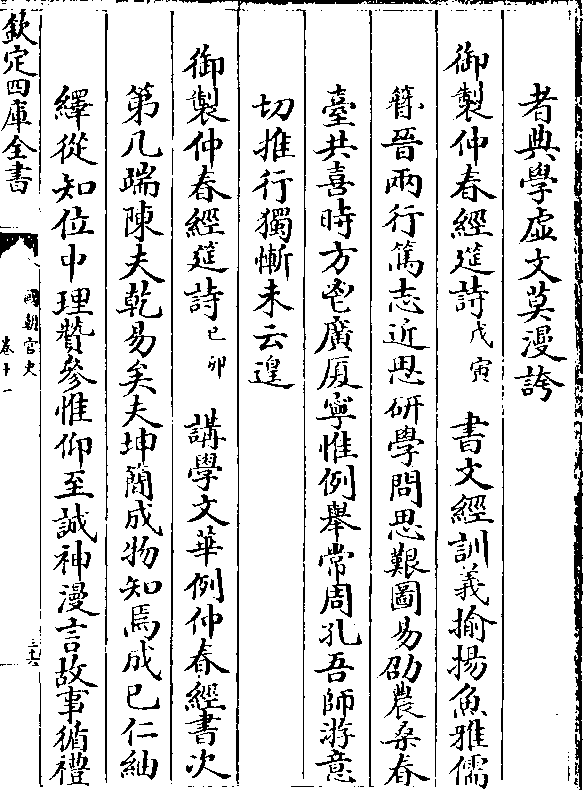 者典學虛文莫漫誇
御製仲春經筵詩戊寅　書文經訓義揄揚魚雅儒
簪晉兩行篤志近思研學問思艱圖易劭農桑春
臺共喜時方邕廣厦寧惟例舉常周孔吾師游意
切推行獨慚未云遑
御製仲春經筵詩己卯　講學文華例仲春經書次
第几端陳夫乾易矣夫坤簡成物知焉成己仁紬
繹從知位中理贊參惟仰至誠神漫言故事循禮
欽定四庫全書
國朝宮史
卷十一
三六